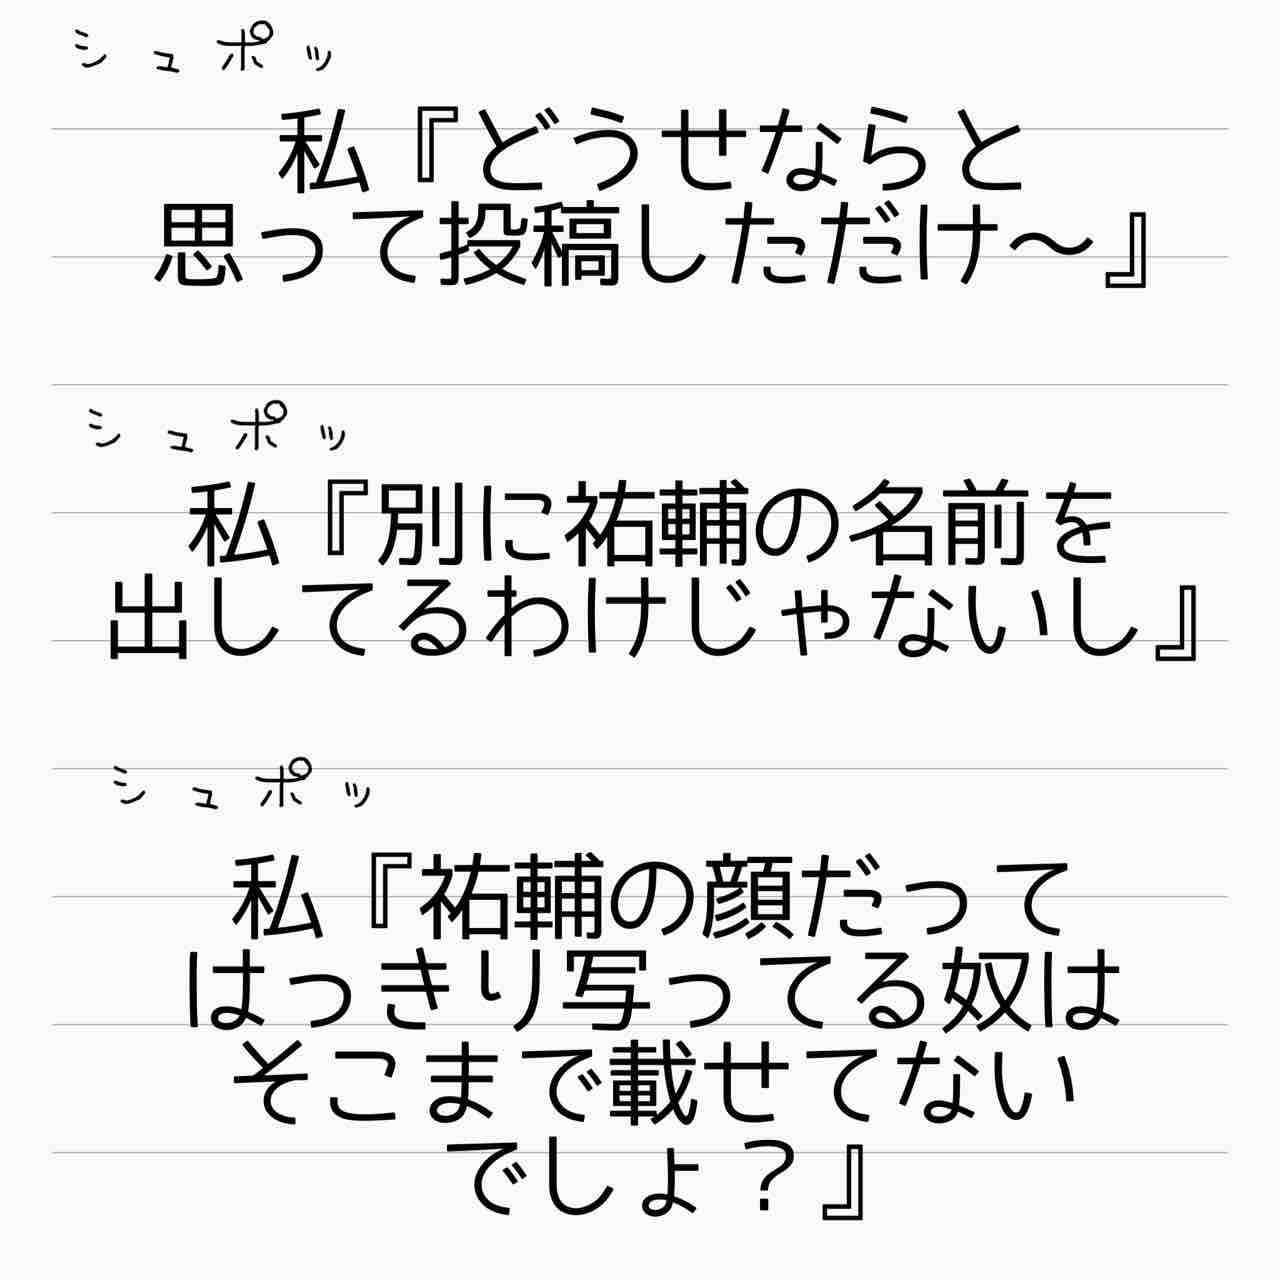 シュポッ
私『どうせならと
思って投稿しただけ〜』
シュポッ
私『別に祐輔の名前を
出してるわけじゃないし』
シュポッ
私『祐輔の顔だって
はっきり写ってる奴は
そこまで載せてない
でしょ？』